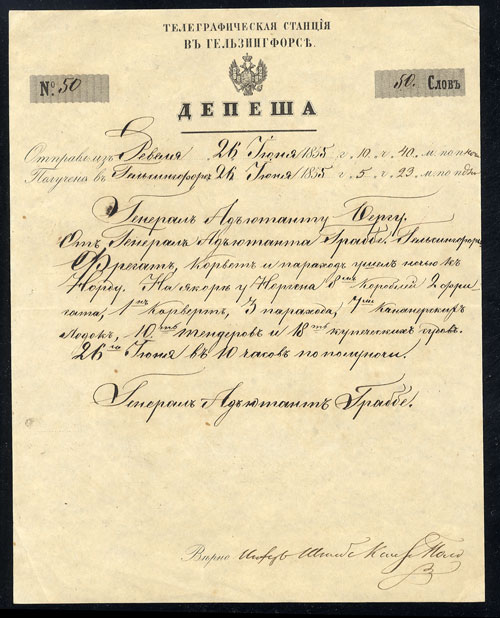 ТЕЛЕГРАФИЧЕСКАЯ СТАНЦІЯ
ВЪ ГЕЛЬЗИНГФОРСѢ.
№ 50
50. Словъ
ДЕПЕША
Отправ. изъ Ревеля 26 Іюня 1855 г. 10 ч. 40 м. по
Получена въ Гельсингфорсъ 26 Іюня 1855 г. 5 ч. 23 м. по
Генералъ Адъютанту Бергу.
Отъ Генералъ Адъютанта Граббе. Гельсингфорсъ
Фрегатъ, корветъ и пароходъ ушли ночью къ
Норду. На якоръ у Наргена 8мъ кораблей 2 фре
гата, 1нъ Корветъ, 3 парохода, 7мь Канонерскихъ
Лодокъ, 10ть тендеровъ и 18ть купеческихъ судовъ.
26го Іюня въ 10 часовъ по полуночи.
Генералъ Адъютантъ Граббе.
Вѣрно